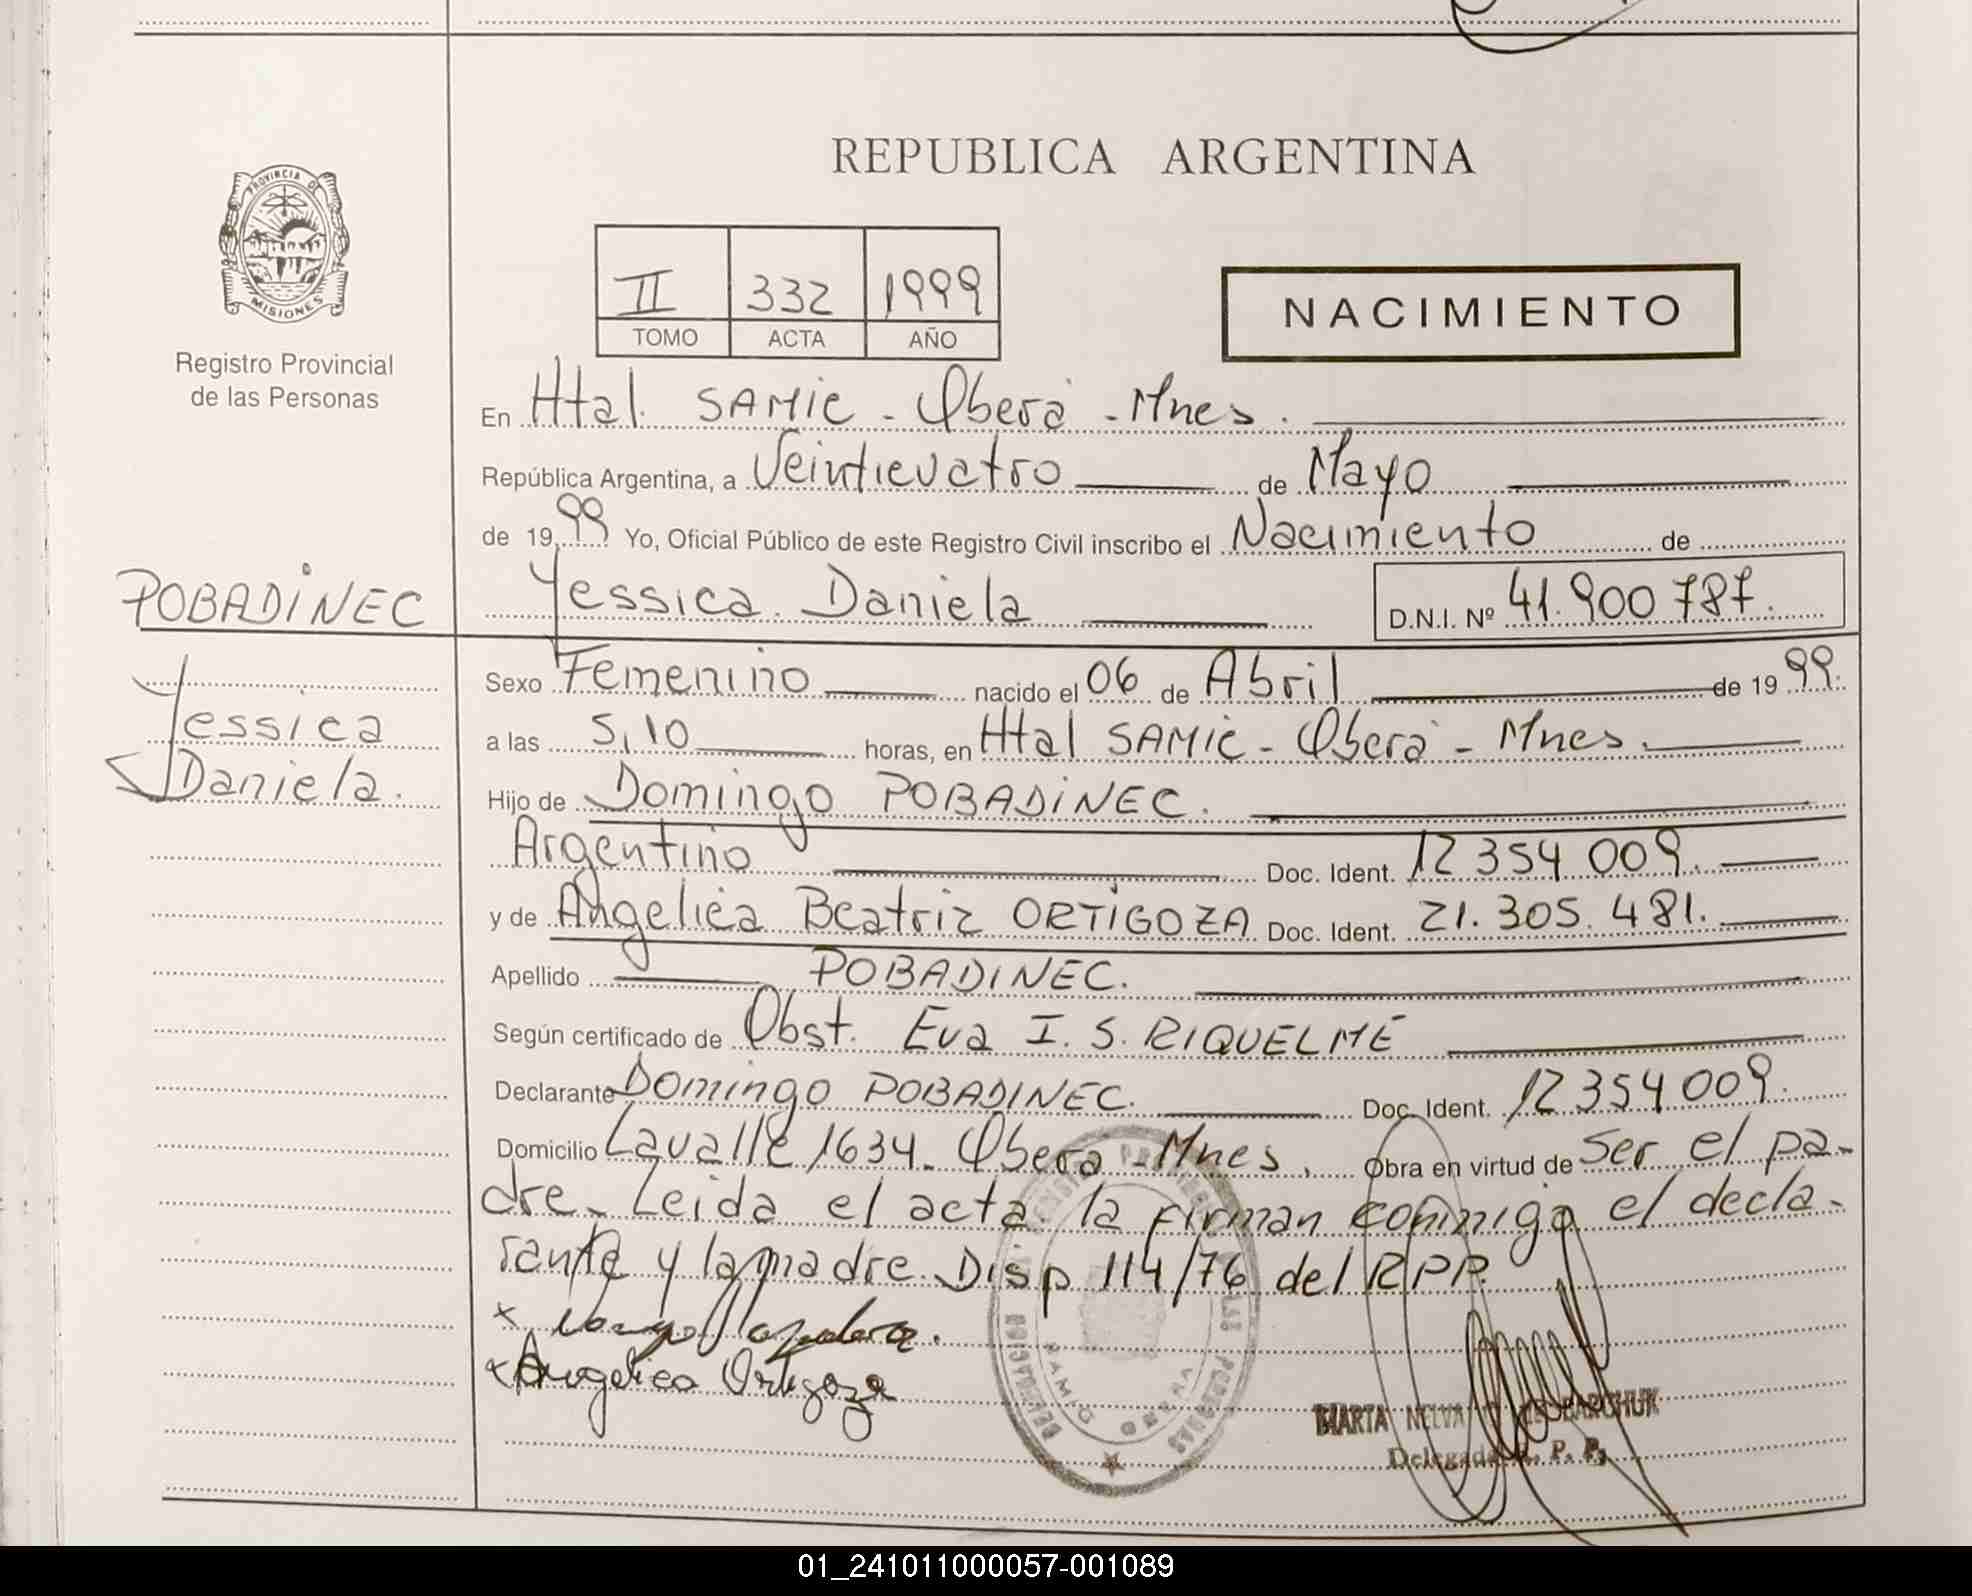 REPUBLICA ARGENTINA
PROVINCIA DE
MISIONES
Registro Provincial
de las Personas
II 332 1999
TOMO ACTA AÑO
NACIMIENTO
En Htal. SAMIC - Oberá - Mnes.
República Argentina, a Veinticuatro de Mayo
de 1999 Yo, Oficial Público de este Registro Civil inscribo el Nacimiento de
POBADINEC
Yessica Daniela D.N.I. Nº 41.900 787.
Yessica
Daniela.
Sexo Femenino nacido el 06 de Abril de 1999.
a las 5,10 horas, en Htal SAMIC - Oberá - Mnes.
Hijo de Domingo POBADINEC.
Argentino Doc. Ident. 12 354 009.
y de Angelica Beatriz ORTIGOZA Doc. Ident. 21.305.481.
Apellido POBADINEC.
Según certificado de Obst. Eva I. S. RIQUELME
Declarante Domingo POBADINEC. Doc. Ident. 12 354 009.
Domicilio Lavalle 1634. Oberá - Mnes. Obra en virtud de Ser el pa-
dre. Leida el acta la firman conmigo el decla-
rante y la madre. Disp 114/76 del RPP.
x
x Angelica Ortigoza
MARTA NELVA
Delegada R. P. P.
01_241011000057-001089